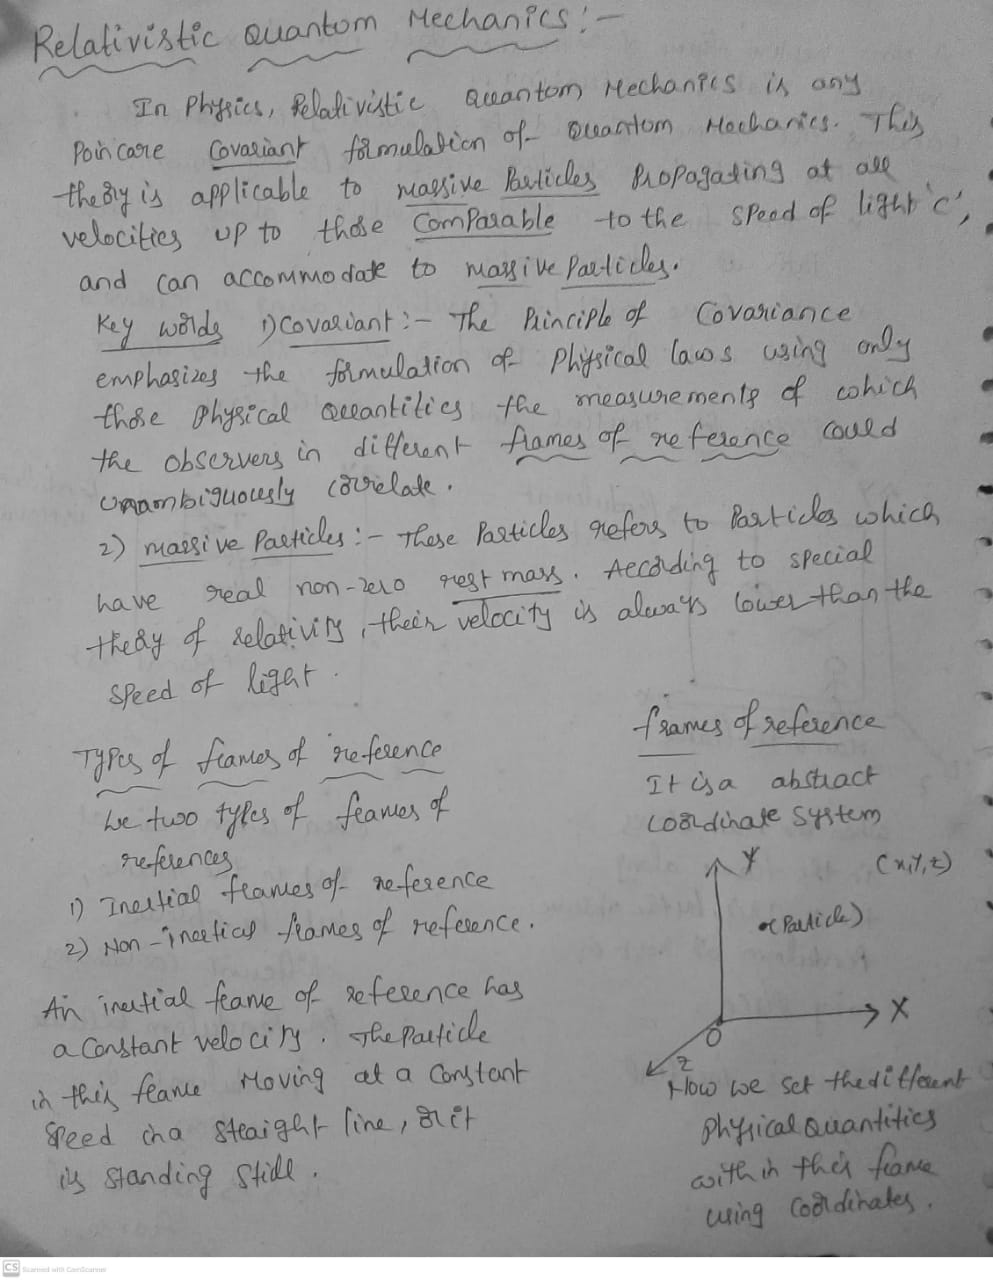 Relativistic Quantom Mechanics:-
In Physics, Relativistic Quantom Mechanics is any
Poincare Covariant formulation of Quantom Mechanics. This
theory is applicable to massive Particles Propagating at all
velocities up to those Comparable to the speed of light 'c',
and can accommodate to massive Particles.
Key words 1) Covariant:- The Principle of Covariance
emphasizes the formulation of Physical laws using only
those Physical Quantities the measurements of which
the observers in different frames of reference could
unambiguously correlate.
2) massive Particles:- These Particles refers to Particles which
have real non-zero rest mass. According to special
theory of relativity, their velocity is always lower than the
speed of light.
Types of frames of reference
we two types of frames of
references
1) Inertial frames of reference
2) Non-inertial frames of reference.
An inertial frame of reference has
a constant velocity. The Particle
in this frame Moving at a Constant
Speed in a straight line, or it
is standing still.
frames of reference
It is a abstract
coordinate system
Y (x,y,z)
(Particle)
X
O
Z
Now we set the different
Physical Quantities
with in this frame
using coordinates.
CS Scanned with CamScanner